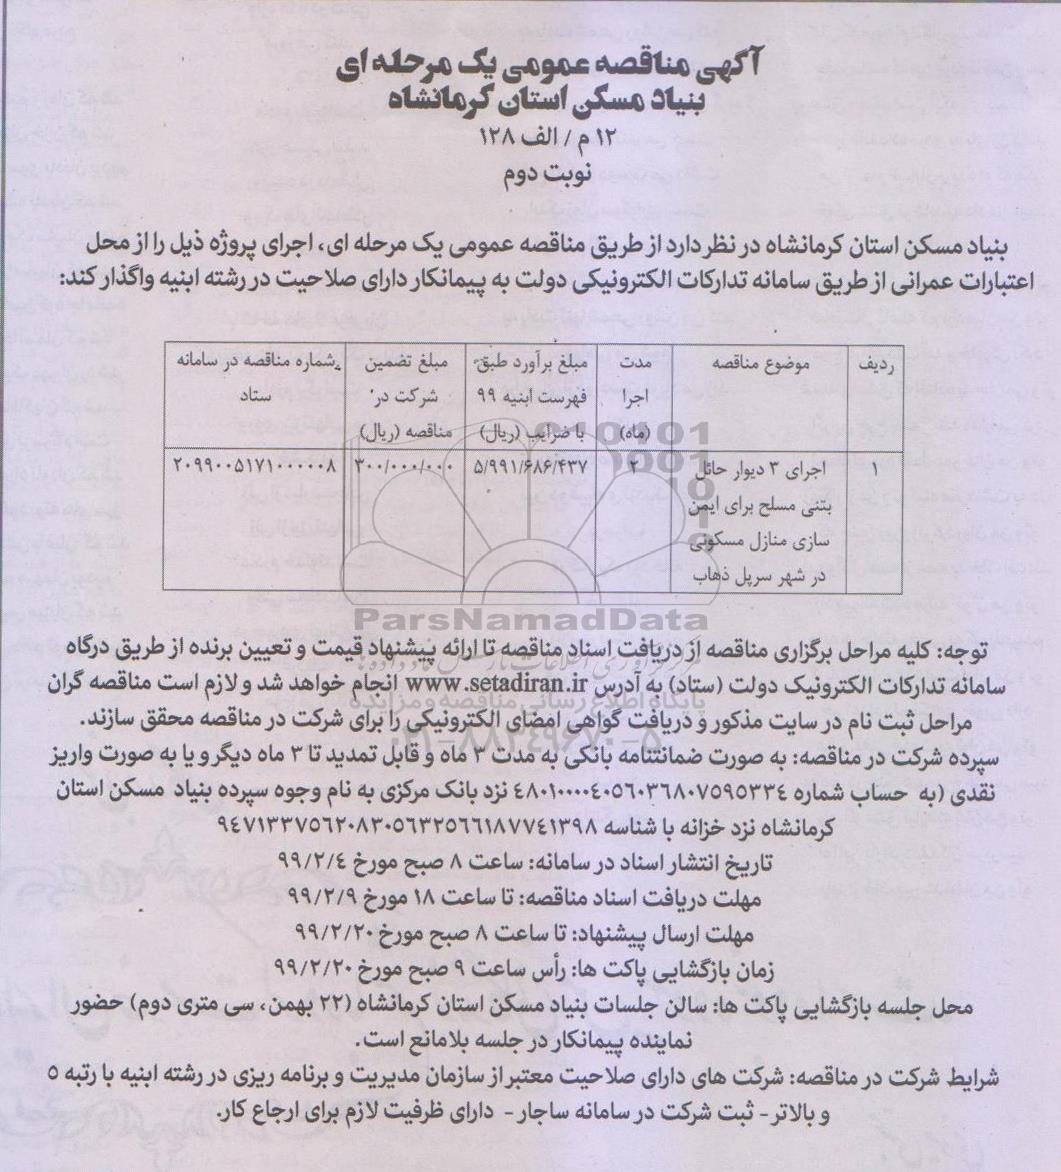 آگهی مناقصه عمومی یک مرحله ای
بنیاد مسکن استان کرمانشاه
۱۲ م / الف ۱۲۸
نوبت دوم
بنیاد مسکن استان کرمانشاه در نظر دارد از طریق مناقصه عمومی یک مرحله ای، اجرای پروژه ذیل را از محل
اعتبارات عمرانی از طریق سامانه تدارکات الکترونیکی دولت به پیمانکار دارای صلاحیت در رشته ابنیه واگذار کند:
ردیف موضوع مناقصه مدت اجرا (ماه) مبلغ برآورد طبق فهرست ابنیه ۹۹ با ضرایب (ریال) مبلغ تضمین شرکت در مناقصه (ریال) شماره مناقصه در سامانه ستاد
۱ اجرای ۳ دیوار حائل ۲ ۵/۹۹۱/۶۸۶/۴۳۷ ۳۰۰/۰۰۰/۰۰۰ ۲۰۹۹۰۰۵۱۷۱۰۰۰۰۰۸
بتنی مسلح برای ایمن
سازی منازل مسکونی
در شهر سرپل ذهاب
ParsNamadData
توجه: کلیه مراحل برگزاری مناقصه از دریافت اسناد مناقصه تا ارائه پیشنهاد قیمت و تعیین برنده از طریق درگاه
سامانه تدارکات الکترونیک دولت (ستاد) به آدرس www.setadiran.ir انجام خواهد شد و لازم است مناقصه گران
پایگاه اطلاع رسانی مناقصه و مزایده
مراحل ثبت نام در سایت مذکور و دریافت گواهی امضای الکترونیکی را برای شرکت در مناقصه محقق سازند.
۰۲۱-۸۸۳۴۹۶۷۰-۵
سپرده شرکت در مناقصه: به صورت ضمانتنامه بانکی به مدت ۳ ماه و قابل تمدید تا ۳ ماه دیگر و یا به صورت واریز
نقدی (به حساب شماره ۴۸۰۱۰۰۰۰۴۰۵۶۰۳۶۸۰۷۵۹۵۳۳۴ نزد بانک مرکزی به نام وجوه سپرده بنیاد مسکن استان
کرمانشاه نزد خزانه با شناسه ۹۴۷۱۳۳۷۵۶۲۰۸۳۰۵۶۳۲۵۶۶۱۸۷۷۴۱۳۹۸
تاریخ انتشار اسناد در سامانه: ساعت ۸ صبح مورخ ۹۹/۲/۴
مهلت دریافت اسناد مناقصه: تا ساعت ۱۸ مورخ ۹۹/۲/۹
مهلت ارسال پیشنهاد: تا ساعت ۸ صبح مورخ ۹۹/۲/۲۰
زمان بازگشایی پاکت ها: رأس ساعت ۹ صبح مورخ ۹۹/۲/۲۰
محل جلسه بازگشایی پاکت ها: سالن جلسات بنیاد مسکن استان کرمانشاه (۲۲ بهمن، سی متری دوم) حضور
نماینده پیمانکار در جلسه بلامانع است.
شرایط شرکت در مناقصه: شرکت های دارای صلاحیت معتبر از سازمان مدیریت و برنامه ریزی در رشته ابنیه با رتبه ۵
و بالاتر- ثبت شرکت در سامانه ساجار- دارای ظرفیت لازم برای ارجاع کار.